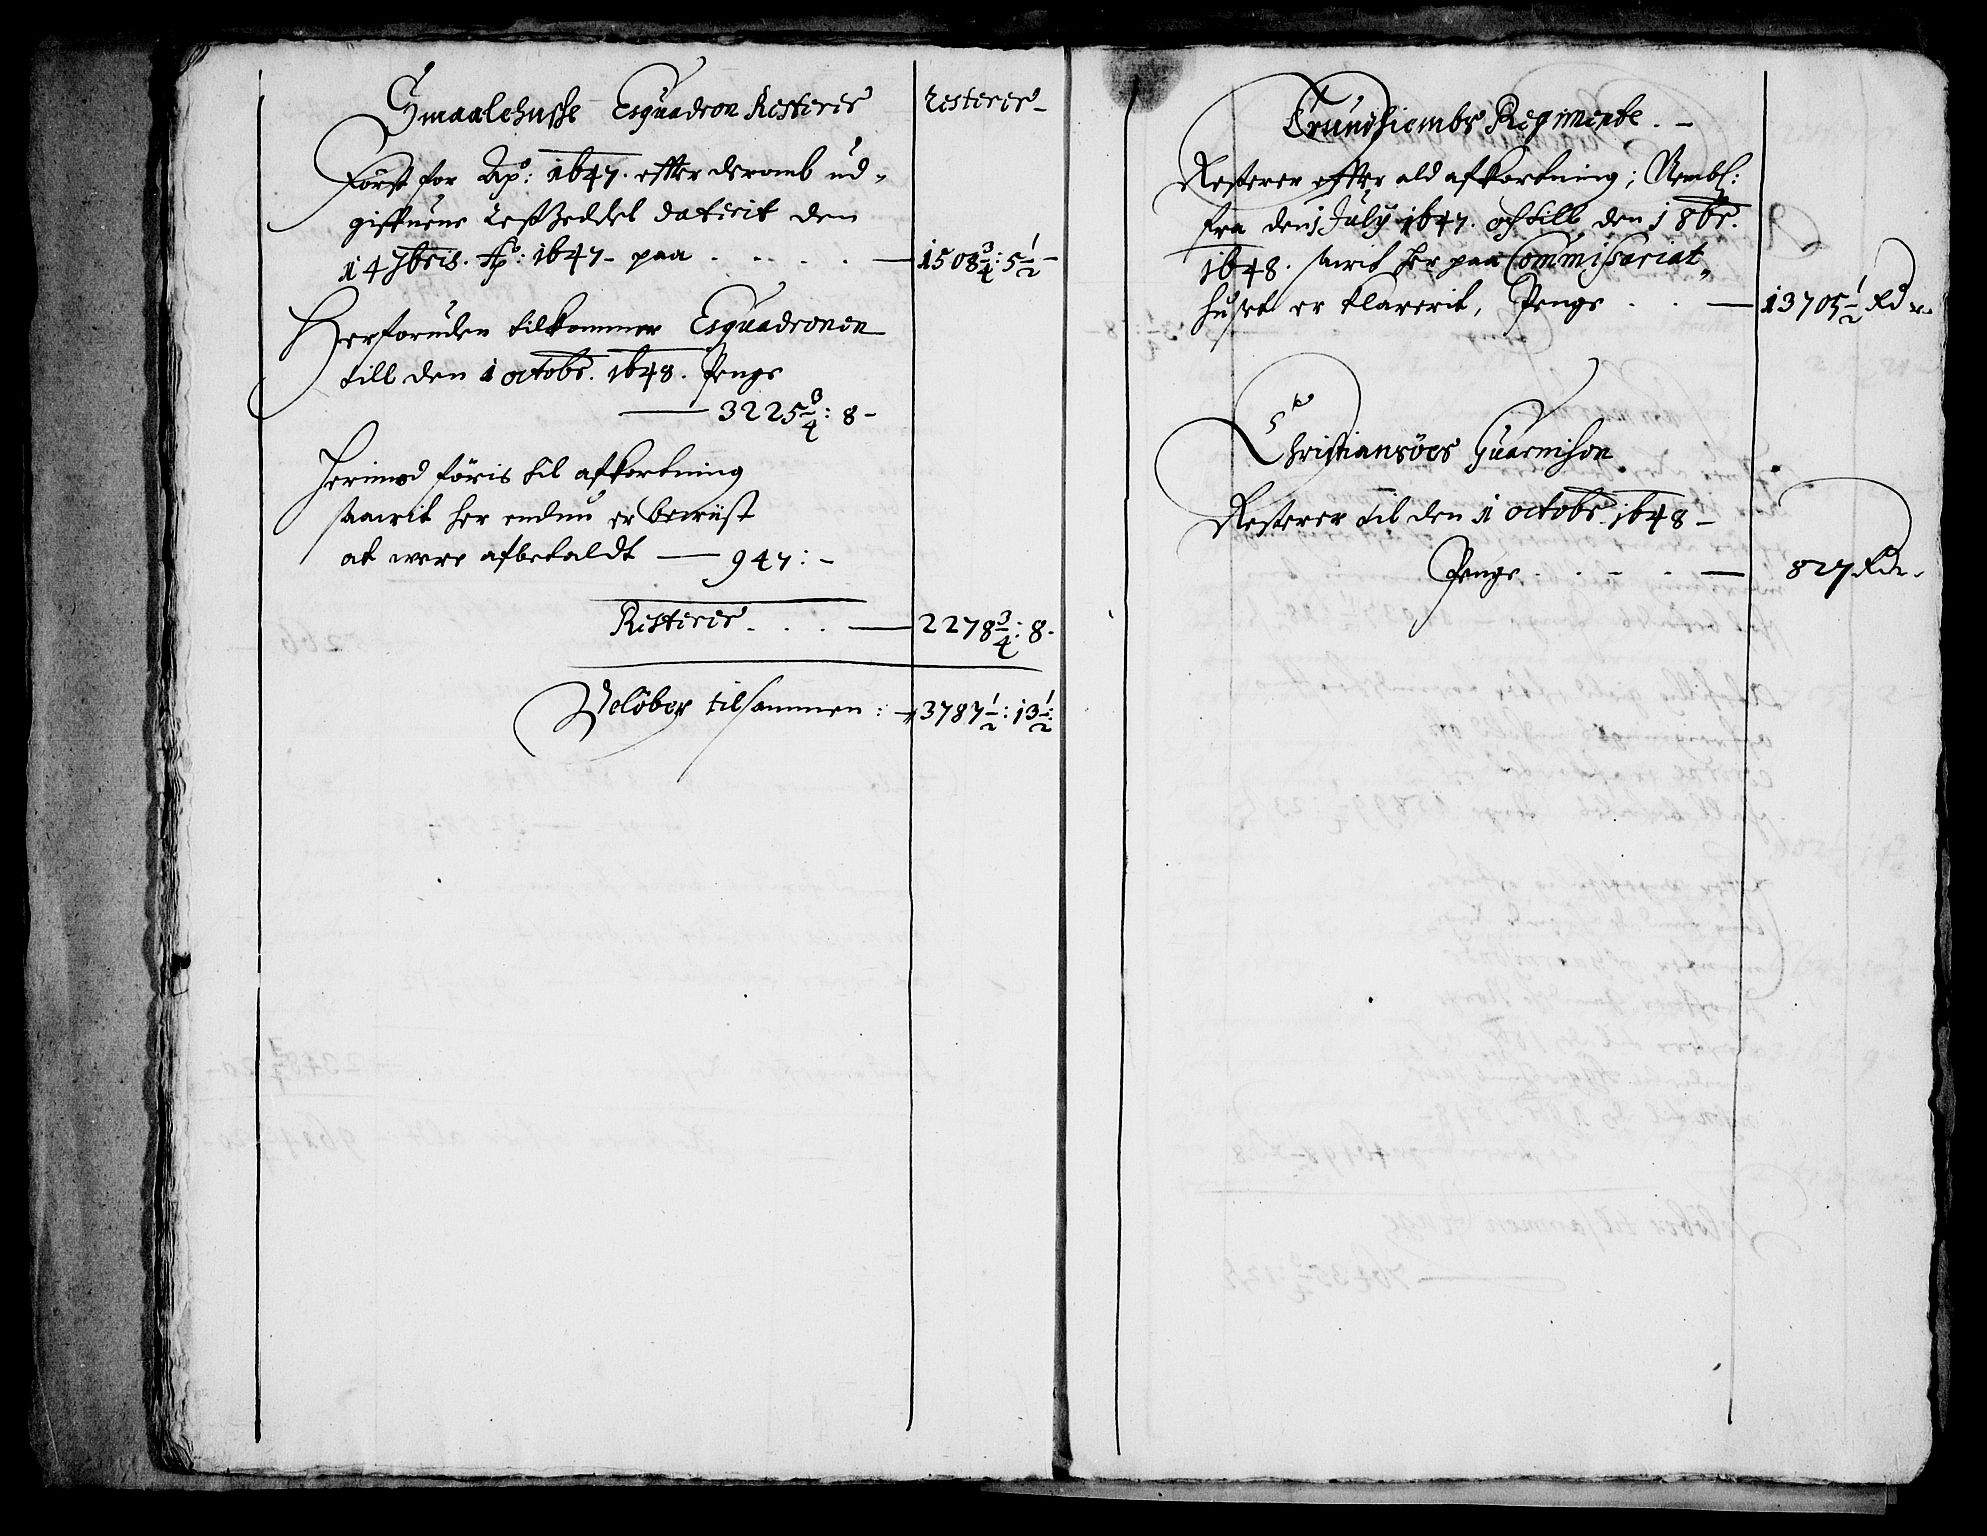 Smaalehusse Esquadron Resterer
Resterer
Först for Ao: 1647. efter deromb ud-
gifvuene Restzeddel daterit den
14 7bris. Ao: 1647 - paa . . . . . — 1508 3/4 : 5 1/2 -
Herforuden tilkommer Esquadronen
till den 1 octobr. 1648. Penge
— 3225 3/4 : 8 -
Herimod föris til afkortning
saavit her endnu er beviist
at were afbetaldt — 947 : -
Resterer . . . — 2278 3/4 : 8 -
Belöber tilsammen : — 3787 1/2 : 13 1/2 :
Trundhiembs Regimente . -
Resterer efter ald afkortning ; Nembl:
fra den 1 July 1647. och till den 1 8br.
1648. saavit her paa Commissariat„
huset er klarerit, Penge . . — 13705 1/2 Rdr.
Christiansöes Guarnison
Resterer til den 1 octobr. 1648 -
Penge . . - . — 827 Rdr.